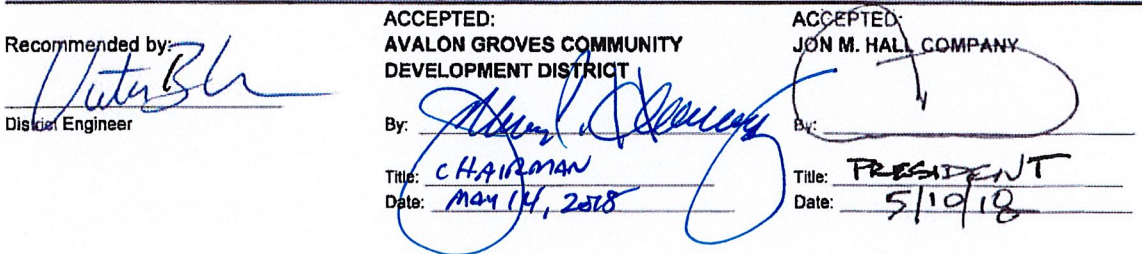 Recommended by:
District Engineer
ACCEPTED:
AVALON GROVES COMMUNITY
DEVELOPMENT DISTRICT
By:
Title: CHAIRMAN
Date: MAY 14, 2018
ACCEPTED:
JON M. HALL COMPANY
By:
Title: PRESIDENT
Date: 5/10/18